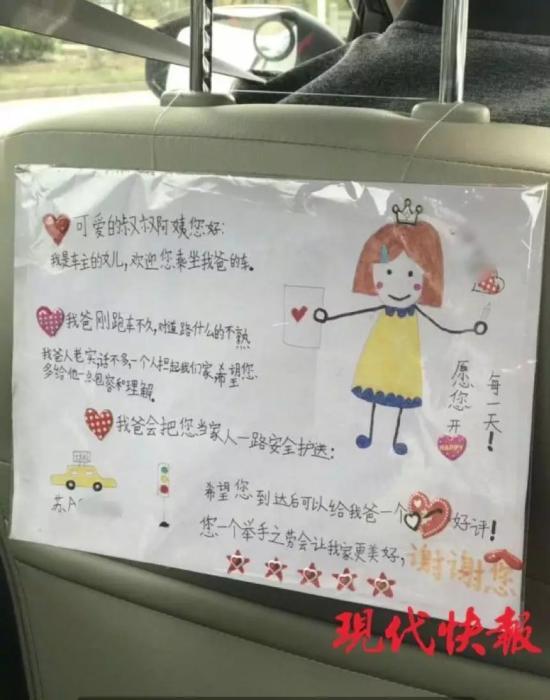 可爱的叔叔阿姨您好:
我是车主的女儿,欢迎您乘坐我爸的车.
我爸刚跑车不久,对道路什么的不熟
我爸人老实,话不多,一个人担起我们家希望您
多给他一点包容和理解.
我爸会把您当家人一路安全护送:
希望您到达后可以给我爸一个好评!
您一个举手之劳会让我家更美好,谢谢您
愿您开
HAPPY
每一天!
苏A
现代快报